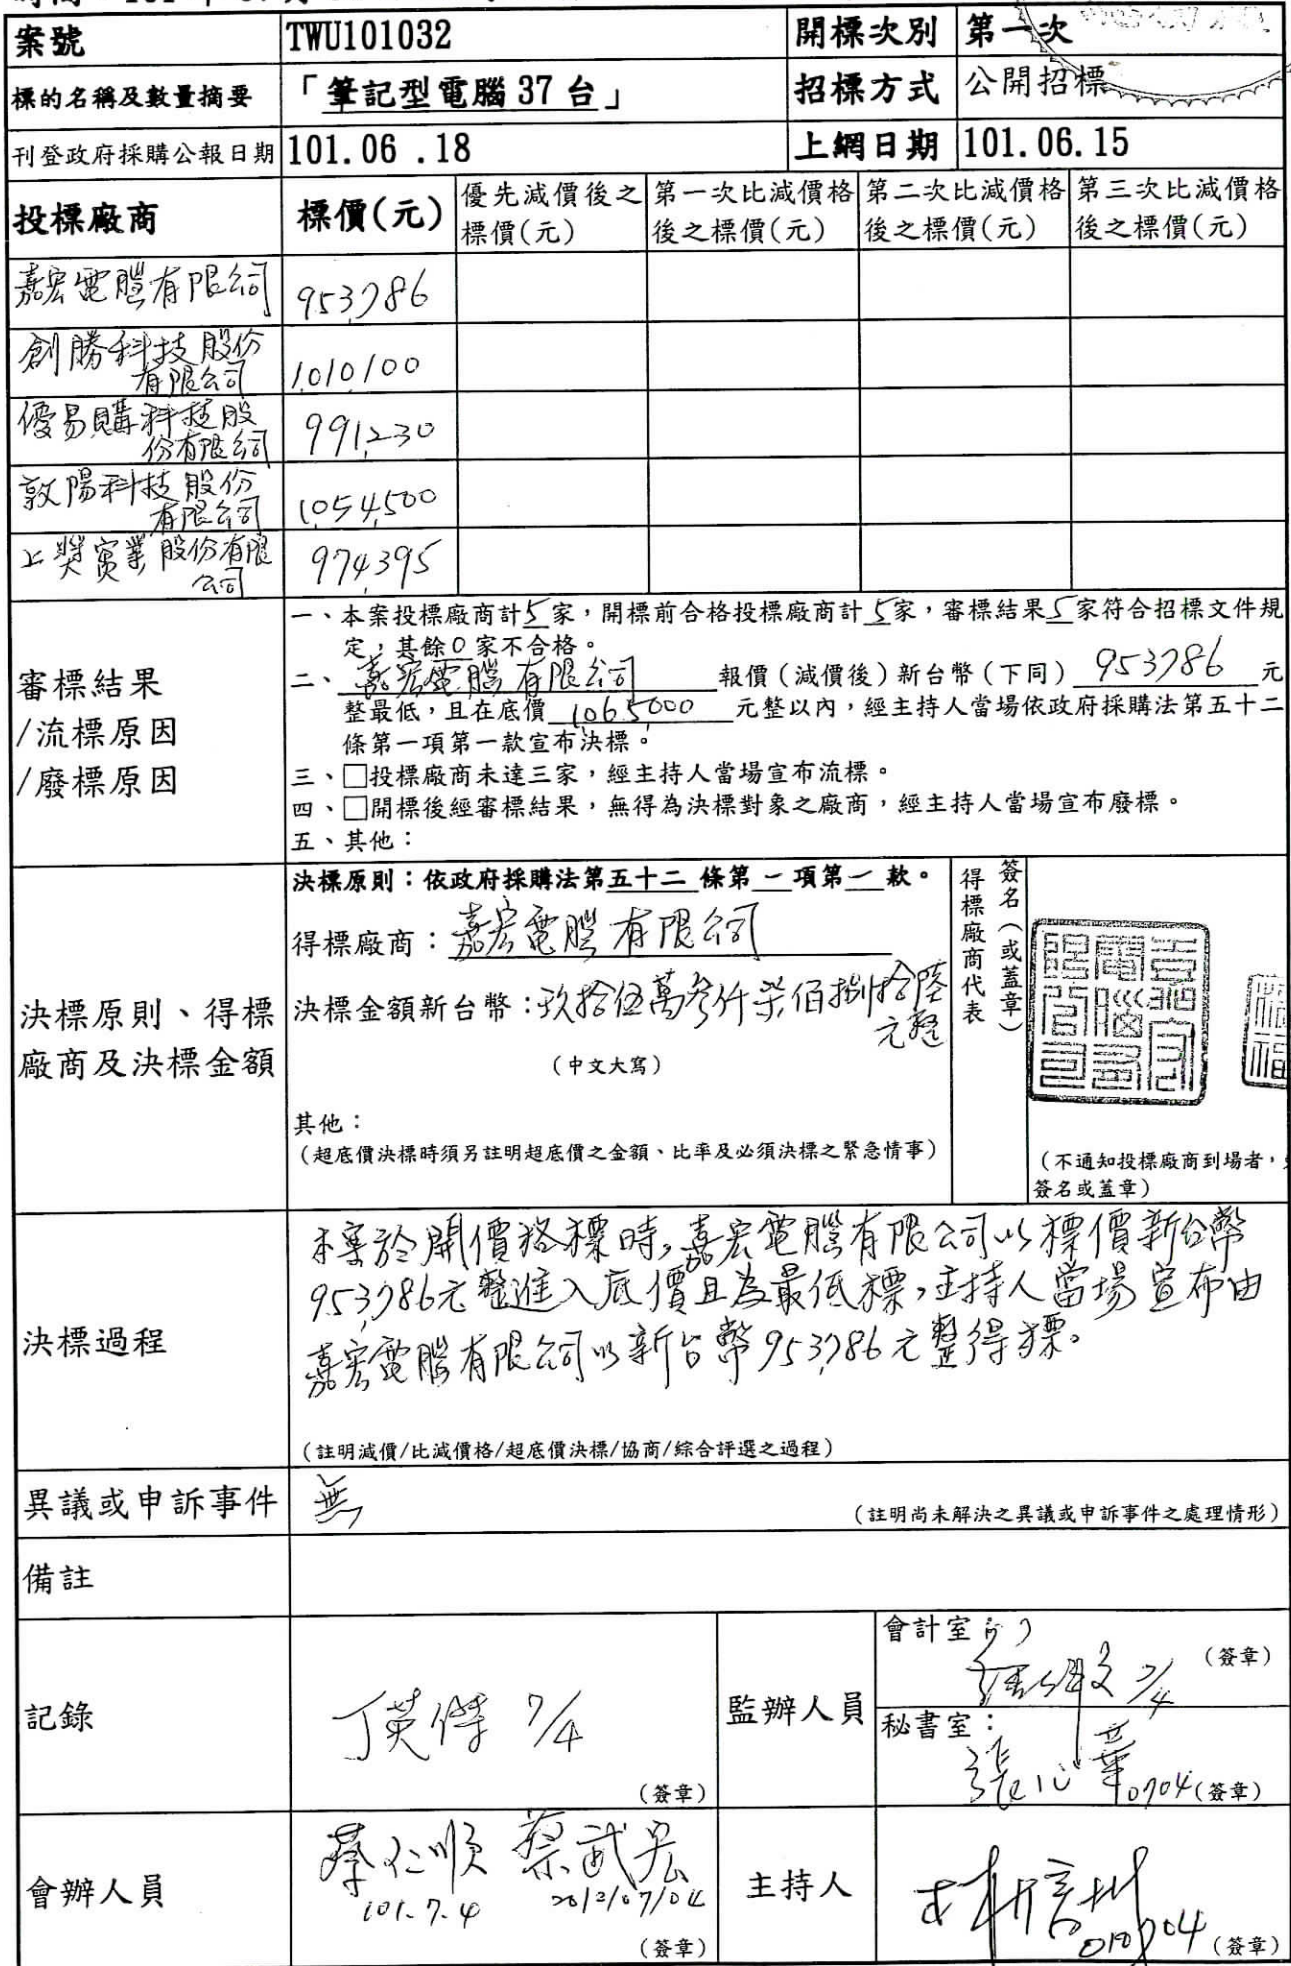 案號 TWU101032 開標次別 第一次
標的名稱及數量摘要 「筆記型電腦37台」 招標方式 公開招標
刊登政府採購公報日期 101.06.18 上網日期 101.06.15
投標廠商 標價(元) 優先減價後之標價(元) 第一次比減價格後之標價(元) 第二次比減價格後之標價(元) 第三次比減價格後之標價(元)
嘉宏電腦有限公司 953,786
創勝科技股份有限公司 1,010,100
優易購科技股份有限公司 991,230
敦陽科技股份有限公司 1,054,500
上獎實業股份有限公司 974,395
審標結果
/流標原因
/廢標原因
一、本案投標廠商計5家，開標前合格投標廠商計5家，審標結果5家符合招標文件規
定，其餘0家不合格。
二、嘉宏電腦有限公司 報價（減價後）新台幣（下同）953,786元
整最低，且在底價1,065,000元整以內，經主持人當場依政府採購法第五十二
條第一項第一款宣布決標。
三、□投標廠商未達三家，經主持人當場宣布流標。
四、□開標後經審標結果，無得為決標對象之廠商，經主持人當場宣布廢標。
五、其他：
決標原則、得標
廠商及決標金額
決標原則：依政府採購法第五十二條第一項第一款。
得標廠商：嘉宏電腦有限公司
決標金額新台幣：玖拾伍萬參仟柒佰捌拾陸
元整
（中文大寫）
其他：
（超底價決標時須另註明超底價之金額、比率及必須決標之緊急情事）
得標廠商代表
簽名（或蓋章）
（不通知投標廠商到場者，
簽名或蓋章）
決標過程
本案於開價格標時，嘉宏電腦有限公司以標價新台幣
953,786元整進入底價且為最低標，主持人當場宣布由
嘉宏電腦有限公司以新台幣953,786元整得標。
（註明減價/比減價格/超底價決標/協商/綜合評選之過程）
異議或申訴事件 無 （註明尚未解決之異議或申訴事件之處理情形）
備註
記錄 丁英傑 7/4 （簽章）
監辦人員
會計室： 7/4 （簽章）
秘書室： 0704 （簽章）
會辦人員 蔡仁順 蔡武宏
101.7.4 2012/07/04
（簽章）
主持人 0704 （簽章）